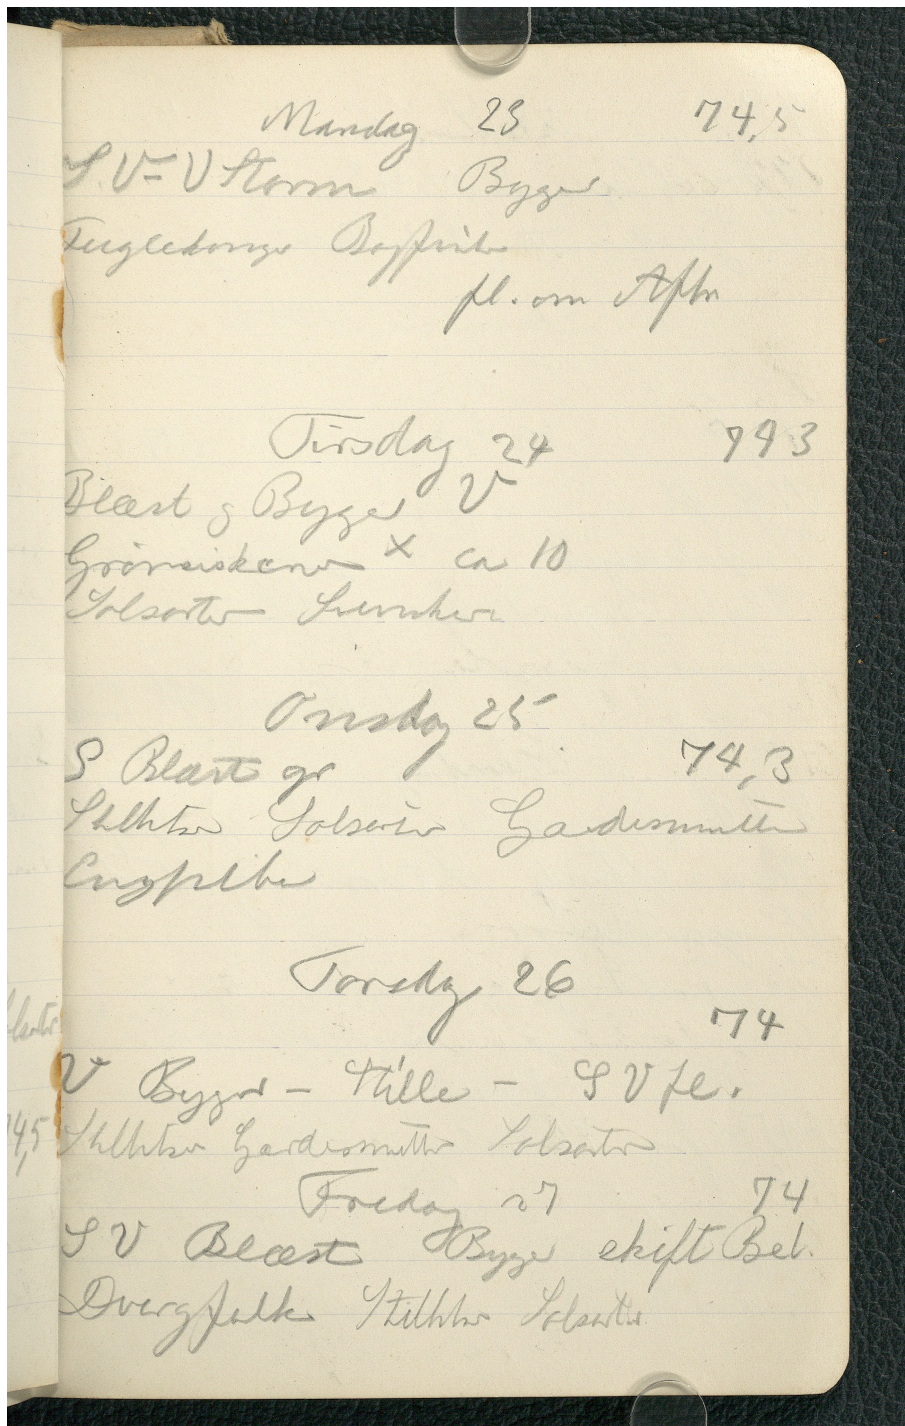 Mandag 23 74,5
S.V-V Storm Byger
Fuglekonge Bogfinke
fl. om Aftn
Tirsdag 24 793
Blæst g Byger V
Grønsiskener x ca 10
Solsorter
Onsdag 25
S Blæst gr 74,3
Stillitser Solsorter Gærdesmutter
Engpiber
Torsdag 26
74
V Byger - Stille - S V fl.
Stillitser Gærdesmutter Solsorter
Fredag 27 74
S V Blæst Byger skift Bel.
Dvergfalk Stillitser Solsorter
4,5